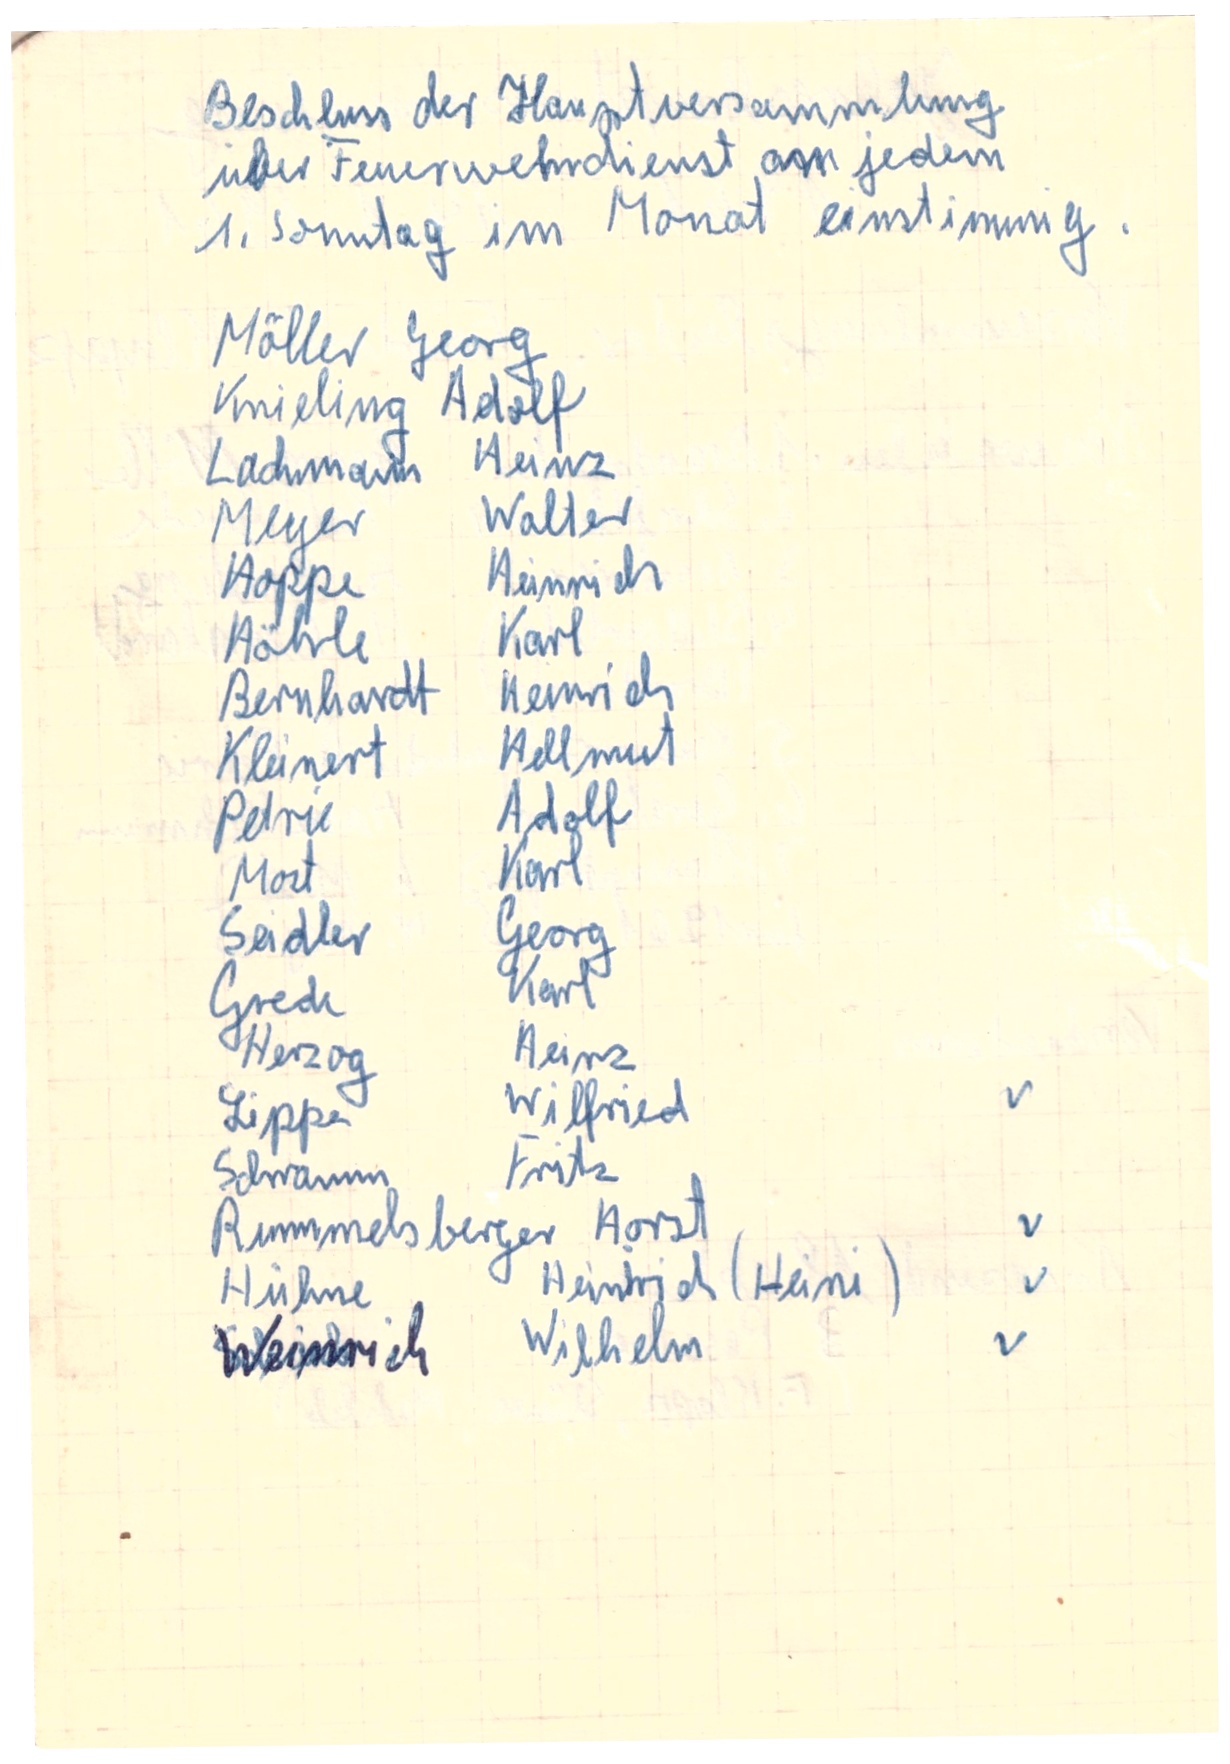 Beschluss der Hauptversammlung
über Feuerwehrdienst an jedem
1. Sonntag im Monat einstimmig.
Möller Georg
Knieling Adolf
Lachmann Heinz
Meyer Walter
Hoppe Heinrich
Höhle Karl
Bernhardt Heinrich
Kleinert Hellmut
Petrie Adolf
Most Karl
Seidler Georg
Grede Karl
Herzog Heinz
Lippe Wilfried ✓
Schramm Fritz
Rummelsberger Horst ✓
Hühne Heinrich (Heini) ✓
Weinrich Wilhelm ✓